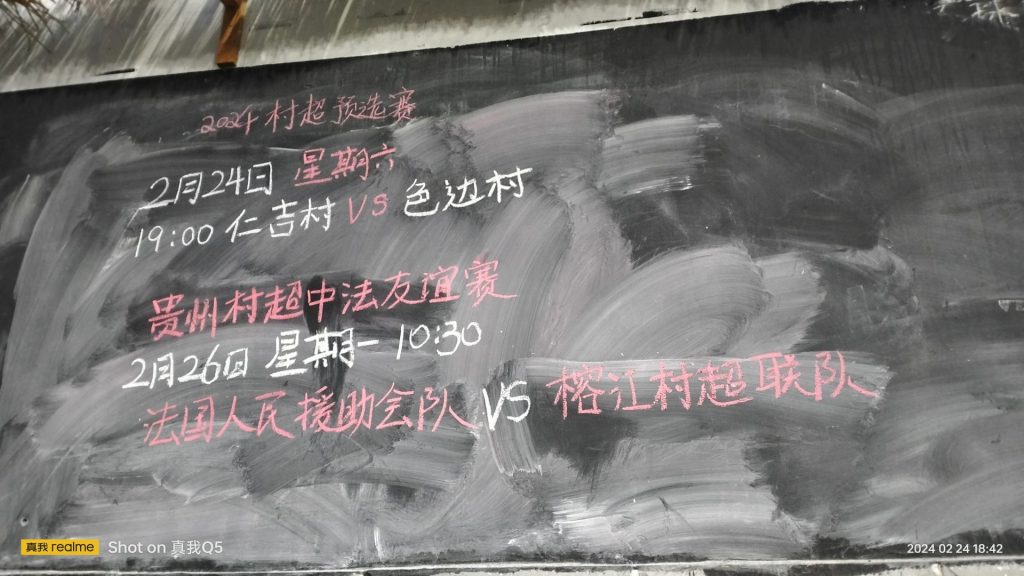 2024年村超预选赛
2月24日 星期六
19:00 仁吉村 VS 色边村
贵州村超中法友谊赛
2月26日 星期一 10:30
法国人民援助会队 VS 榕江村超联队
真我 realme Shot on 真我Q5
2024 02 24 18:42